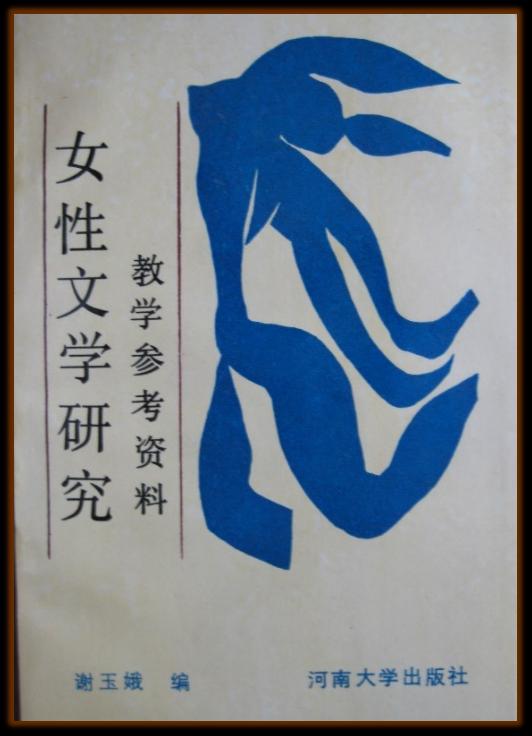 女性文学研究
教学参考资料
谢玉娥 编
河南大学出版社